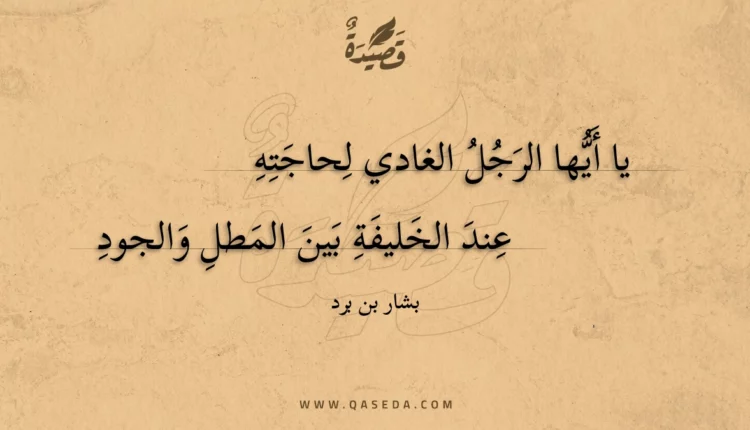 قَصِيدَةٌ
يا أَيُّها الرَجُلُ الغادي لِحاجَتِهِ
عِندَ الخَليفَةِ بَينَ المَطلِ وَالجودِ
بشار بن برد
WWW.QASEDA.COM